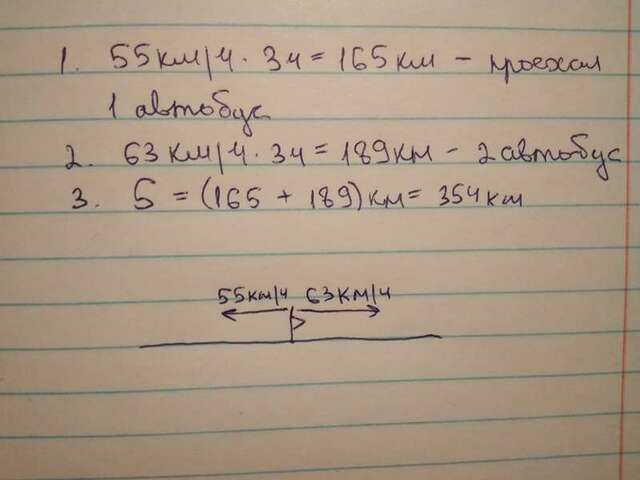 1. 55км/ч · 3ч = 165км – проехал
1 автобус
2. 63км/ч · 3ч = 189км – 2 автобус
3. S = (165 + 189)км = 354км
55км/ч 63км/ч